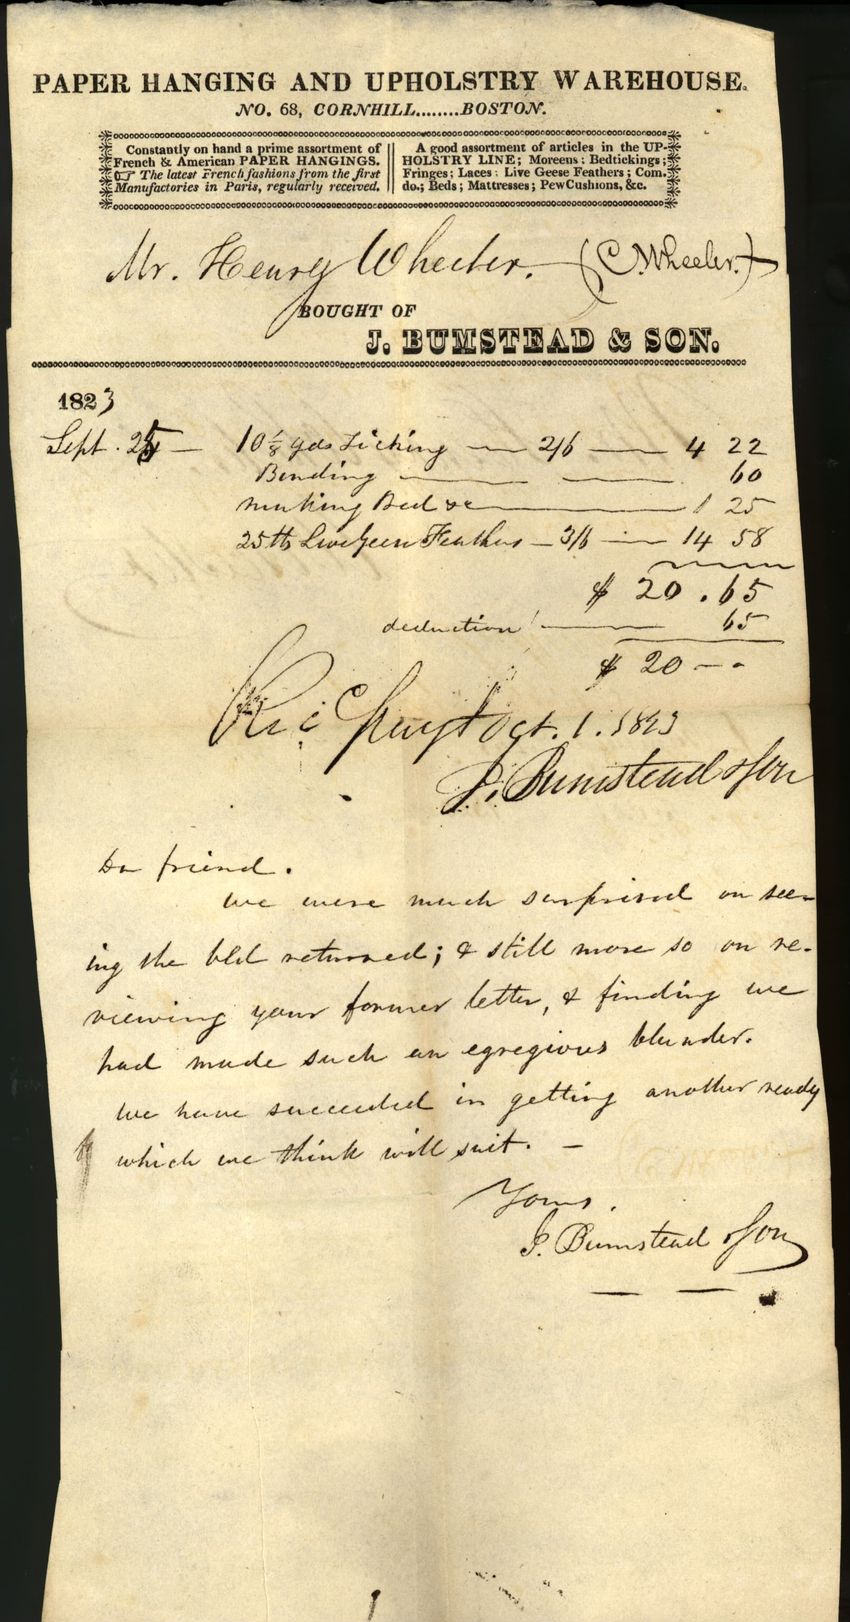 PAPER HANGING AND UPHOLSTRY WAREHOUSE.
NO. 68, CORNHILL........BOSTON.
Constantly on hand a prime assortment of
French & American PAPER HANGINGS.
☞ The latest French fashions from the first
Manufactories in Paris, regularly received.
A good assortment of articles in the UP-
HOLSTRY LINE; Moreens: Bedtickings;
Fringes; Laces: Live Geese Feathers; Com.
do.; Beds; Mattresses; Pew Cushions, &c.
Mr. Henry Wheeler. (C. Wheeler.)
BOUGHT OF
J. BUMSTEAD & SON.
1823
Sept. 25 — 10 1/8 yds Ticking — 2/6 — 4 22
Binding — — 60
making Bed &c — 1 25
25 lb Live Geese Feathers — 3/6 — 14 58
$ 20.65
deduction — 65
$ 20 - -
Rec'd Payt Oct. 1. 1823
J. Bumstead & Son
Dr friend.
we were much surprised on see-
ing the bed returned; & still more so on re-
viewing your former letter, & finding we
had made such an egregious blunder.
we have succeeded in getting another ready
which we think will suit. —
Yours.
J. Bumstead & Son